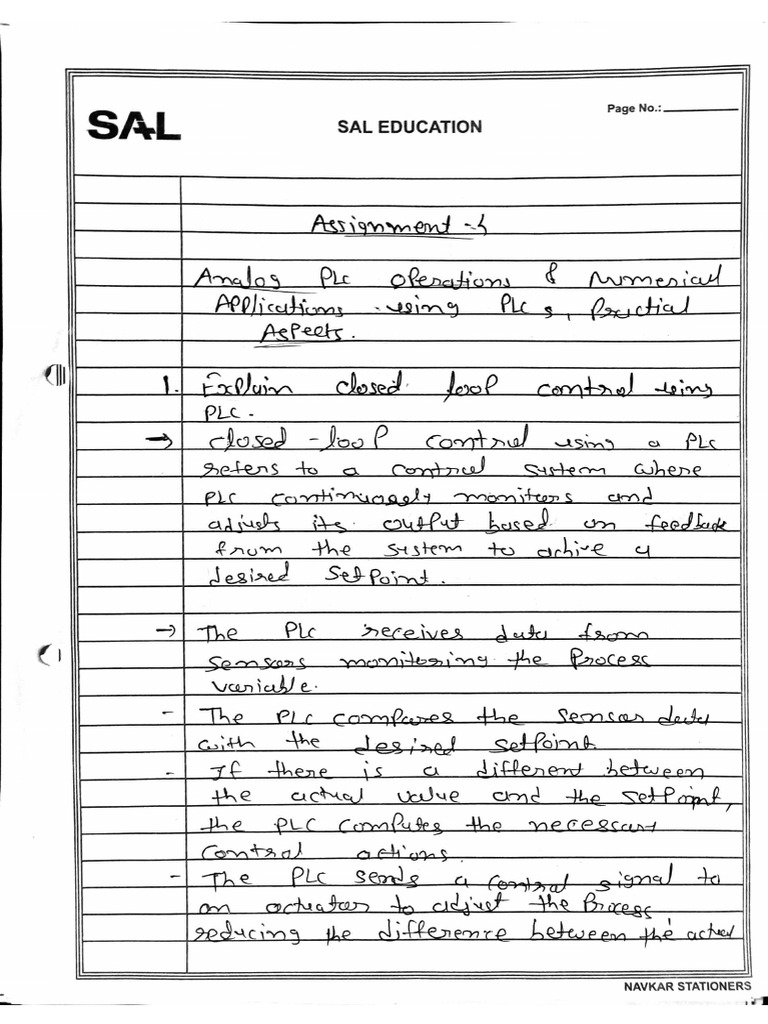 Page No.:
SAL
SAL EDUCATION
Assignment -
Analog PLC operations & Numerical
Applications using PLCs, Practial
Aspects.
1. Explain closed loop control using
PLC.
→ closed-loop control using a PLC
refers to a control system where
PLC continuously monitors and
adjusts its output based on feedback
from the system to achive a
desired SetPoint.
→ The PLC receives data from
sensors monitoring the Process
variable.
- The PLC compares the sensor data
with the desired setpoint
- If there is a different between
the actual value and the setpoint,
the PLC computes the necessary
control actions.
- The PLC sends a control signal to
an actuator to adjust the Process
reducing the difference between the actual
NAVKAR STATIONERS